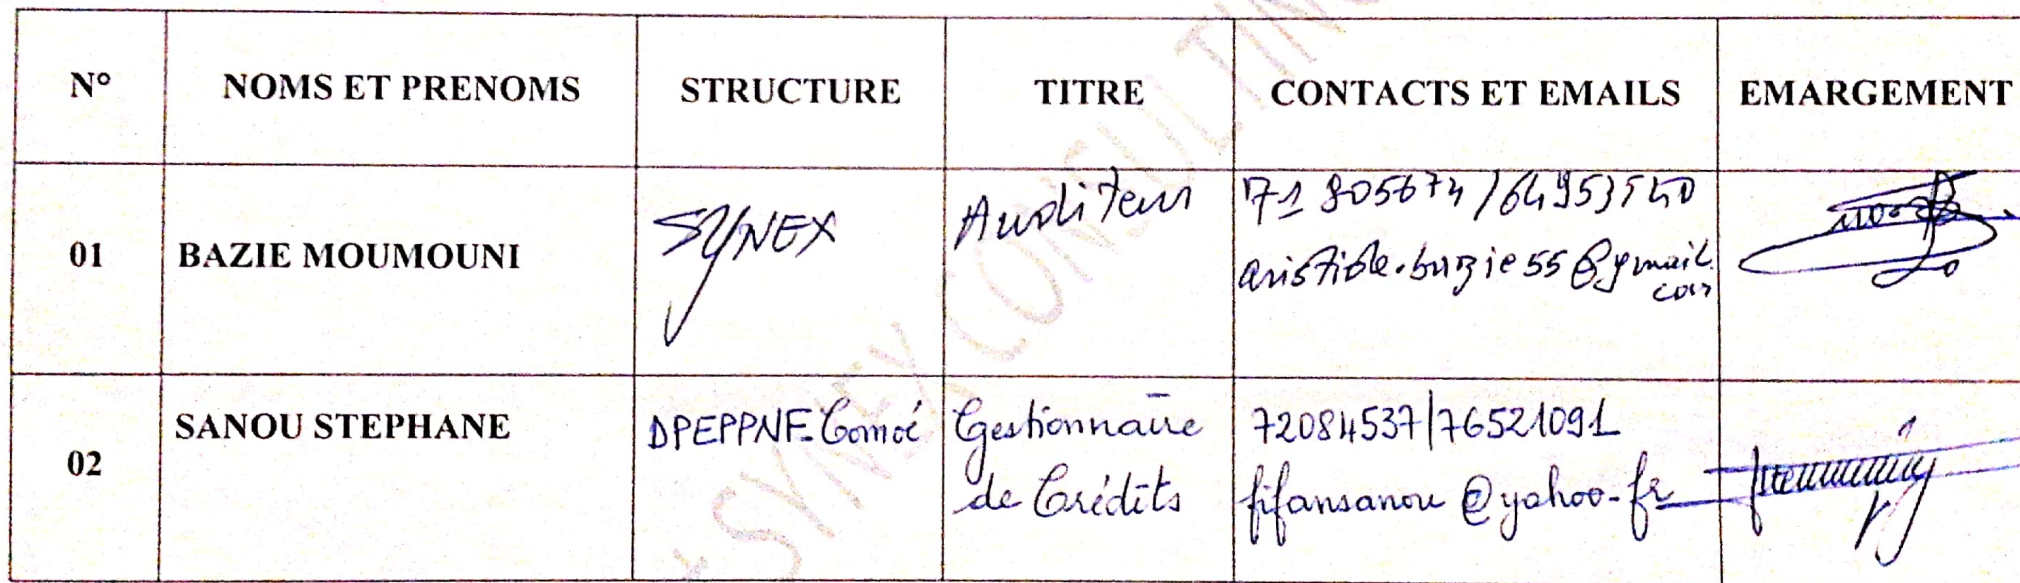 N° NOMS ET PRENOMS STRUCTURE TITRE CONTACTS ET EMAILS EMARGEMENT
01 BAZIE MOUMOUNI SYNEX Auditeur 71805674/64953540
aristide.bazie55@gmail.
com
02 SANOU STEPHANE DPEPPNF-Comoé Gestionnaire 72084537/76521091
de Crédits fifansanou@yahoo.fr
SYNEX CONSULTING